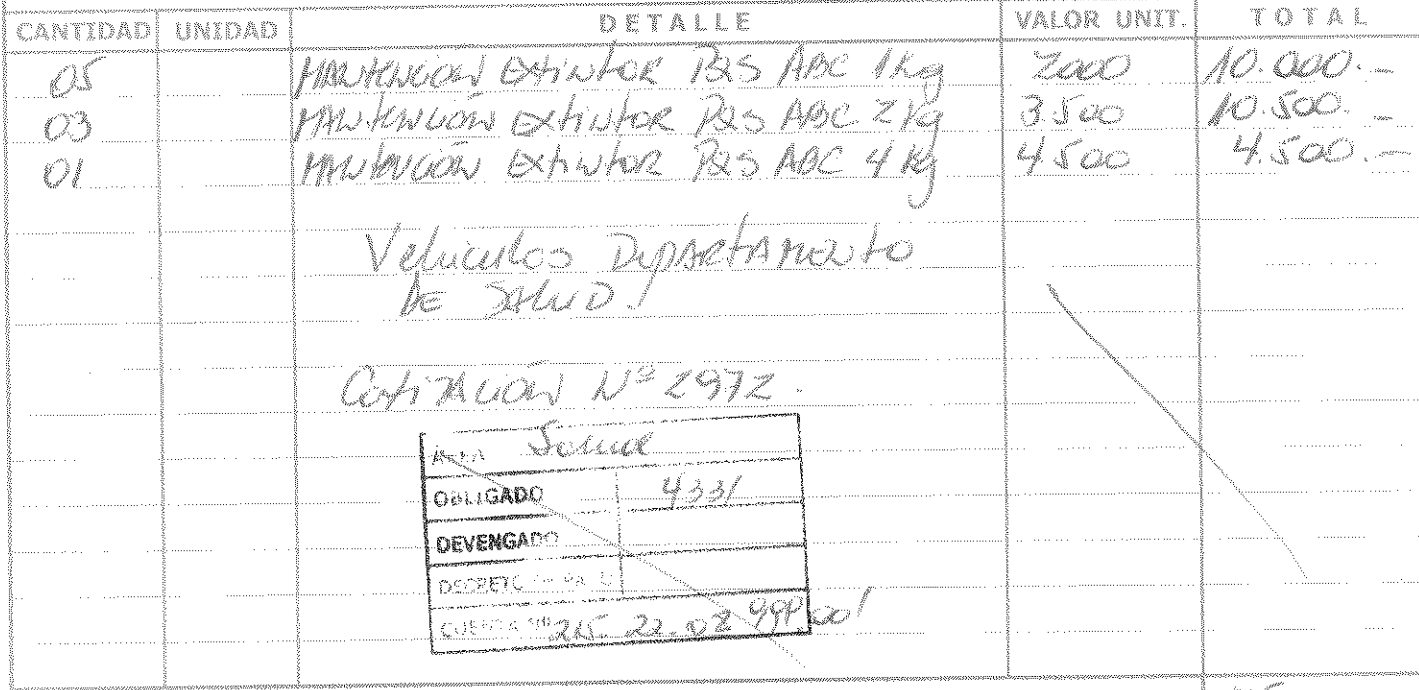 CANTIDAD UNIDAD DETALLE VALOR UNIT. TOTAL
05 MANTENCION EXTINTOR PQS ABC 1 Kg 2000 10.000.-
03 MANTENCIÓN EXTINTOR PQS ABC 2 Kg 3.500 10.500.-
01 MANTENCIÓN EXTINTOR PQS ABC 4 Kg 4.500 4.500.-
Vehiculos DepARTAMENTO
DE SALUD.
Cotización Nº 2972.
AREA Salud
OBLIGADO 4331
DEVENGADO
DECRETO
CUENTA Nº 215. 22. 02 999.001